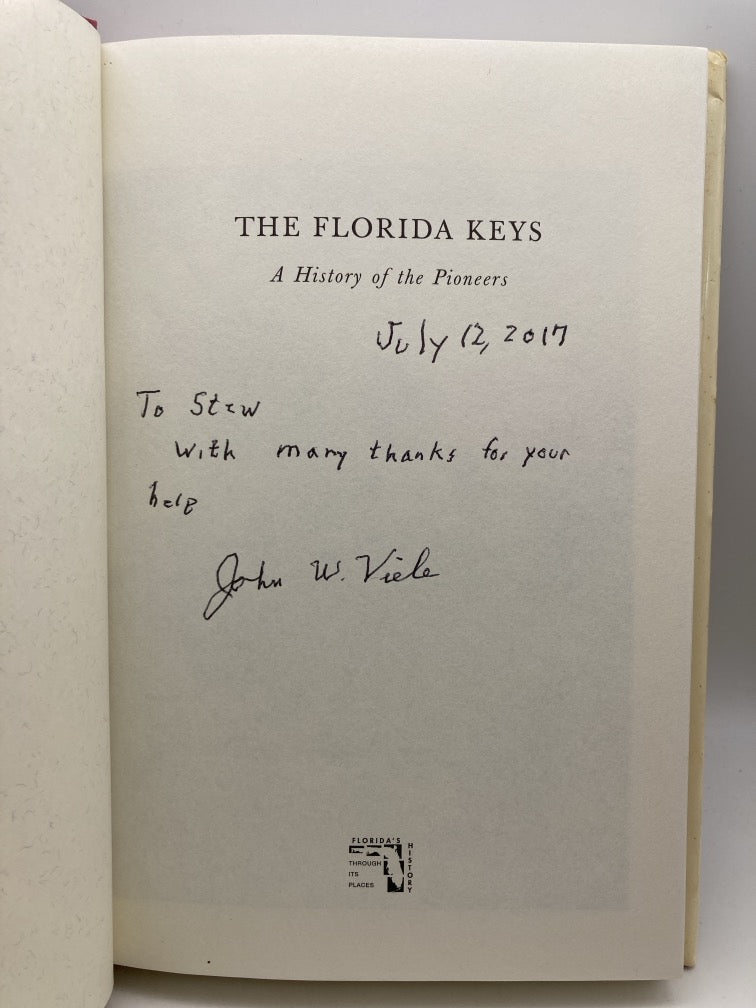 THE FLORIDA KEYS
A History of the Pioneers
July 12, 2017
To Stew
With many thanks for your
help
John W. Viele
FLORIDA'S
HISTORY
THROUGH
ITS
PLACES